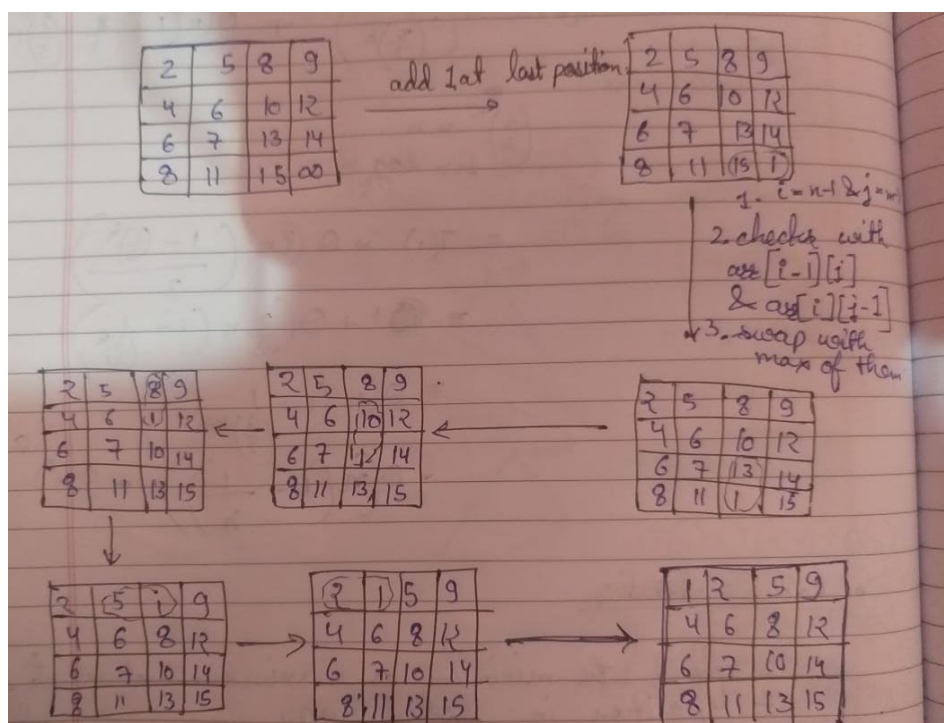 2 5 8 9
4 6 10 12
6 7 13 14
8 11 15 ∞
add 1 at last position
2 5 8 9
4 6 10 12
6 7 13 14
8 11 15 1
1. i = n-1 & j =
2. checks with
arr[i-1][j]
& arr[i][j-1]
3. swap with
max of them
2 5 8 9
4 6 10 12
6 7 13 14
8 11 1 15
2 5 8 9
4 6 10 12
6 7 1 14
8 11 13 15
2 5 8 9
4 6 1 12
6 7 10 14
8 11 13 15
2 5 1 9
4 6 8 12
6 7 10 14
8 11 13 15
2 1 5 9
4 6 8 12
6 7 10 14
8 11 13 15
1 2 5 9
4 6 8 12
6 7 10 14
8 11 13 15